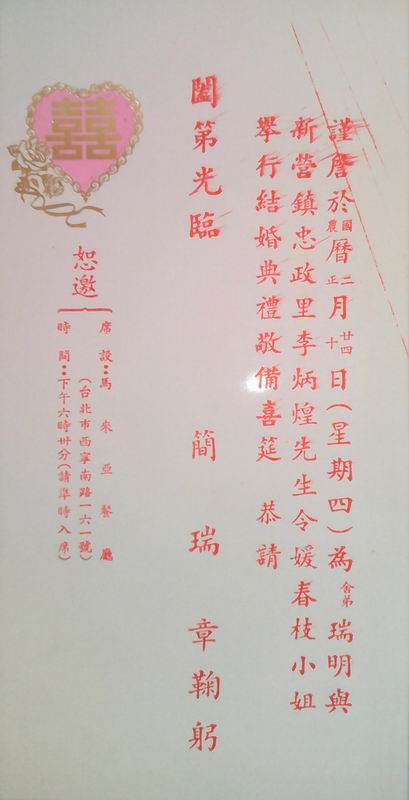 謹詹於國農曆二正月廿四十日(星期四)為舍弟瑞明與
新營鎮忠政里李炳煌先生令媛春枝小姐
舉行結婚典禮敬備喜筵 恭請
闔第光臨
簡瑞章鞠躬
恕邀
席設：馬來亞餐廳
(台北市西寧南路一六一號)
時間：下午六時卅分(請準時入席)
囍